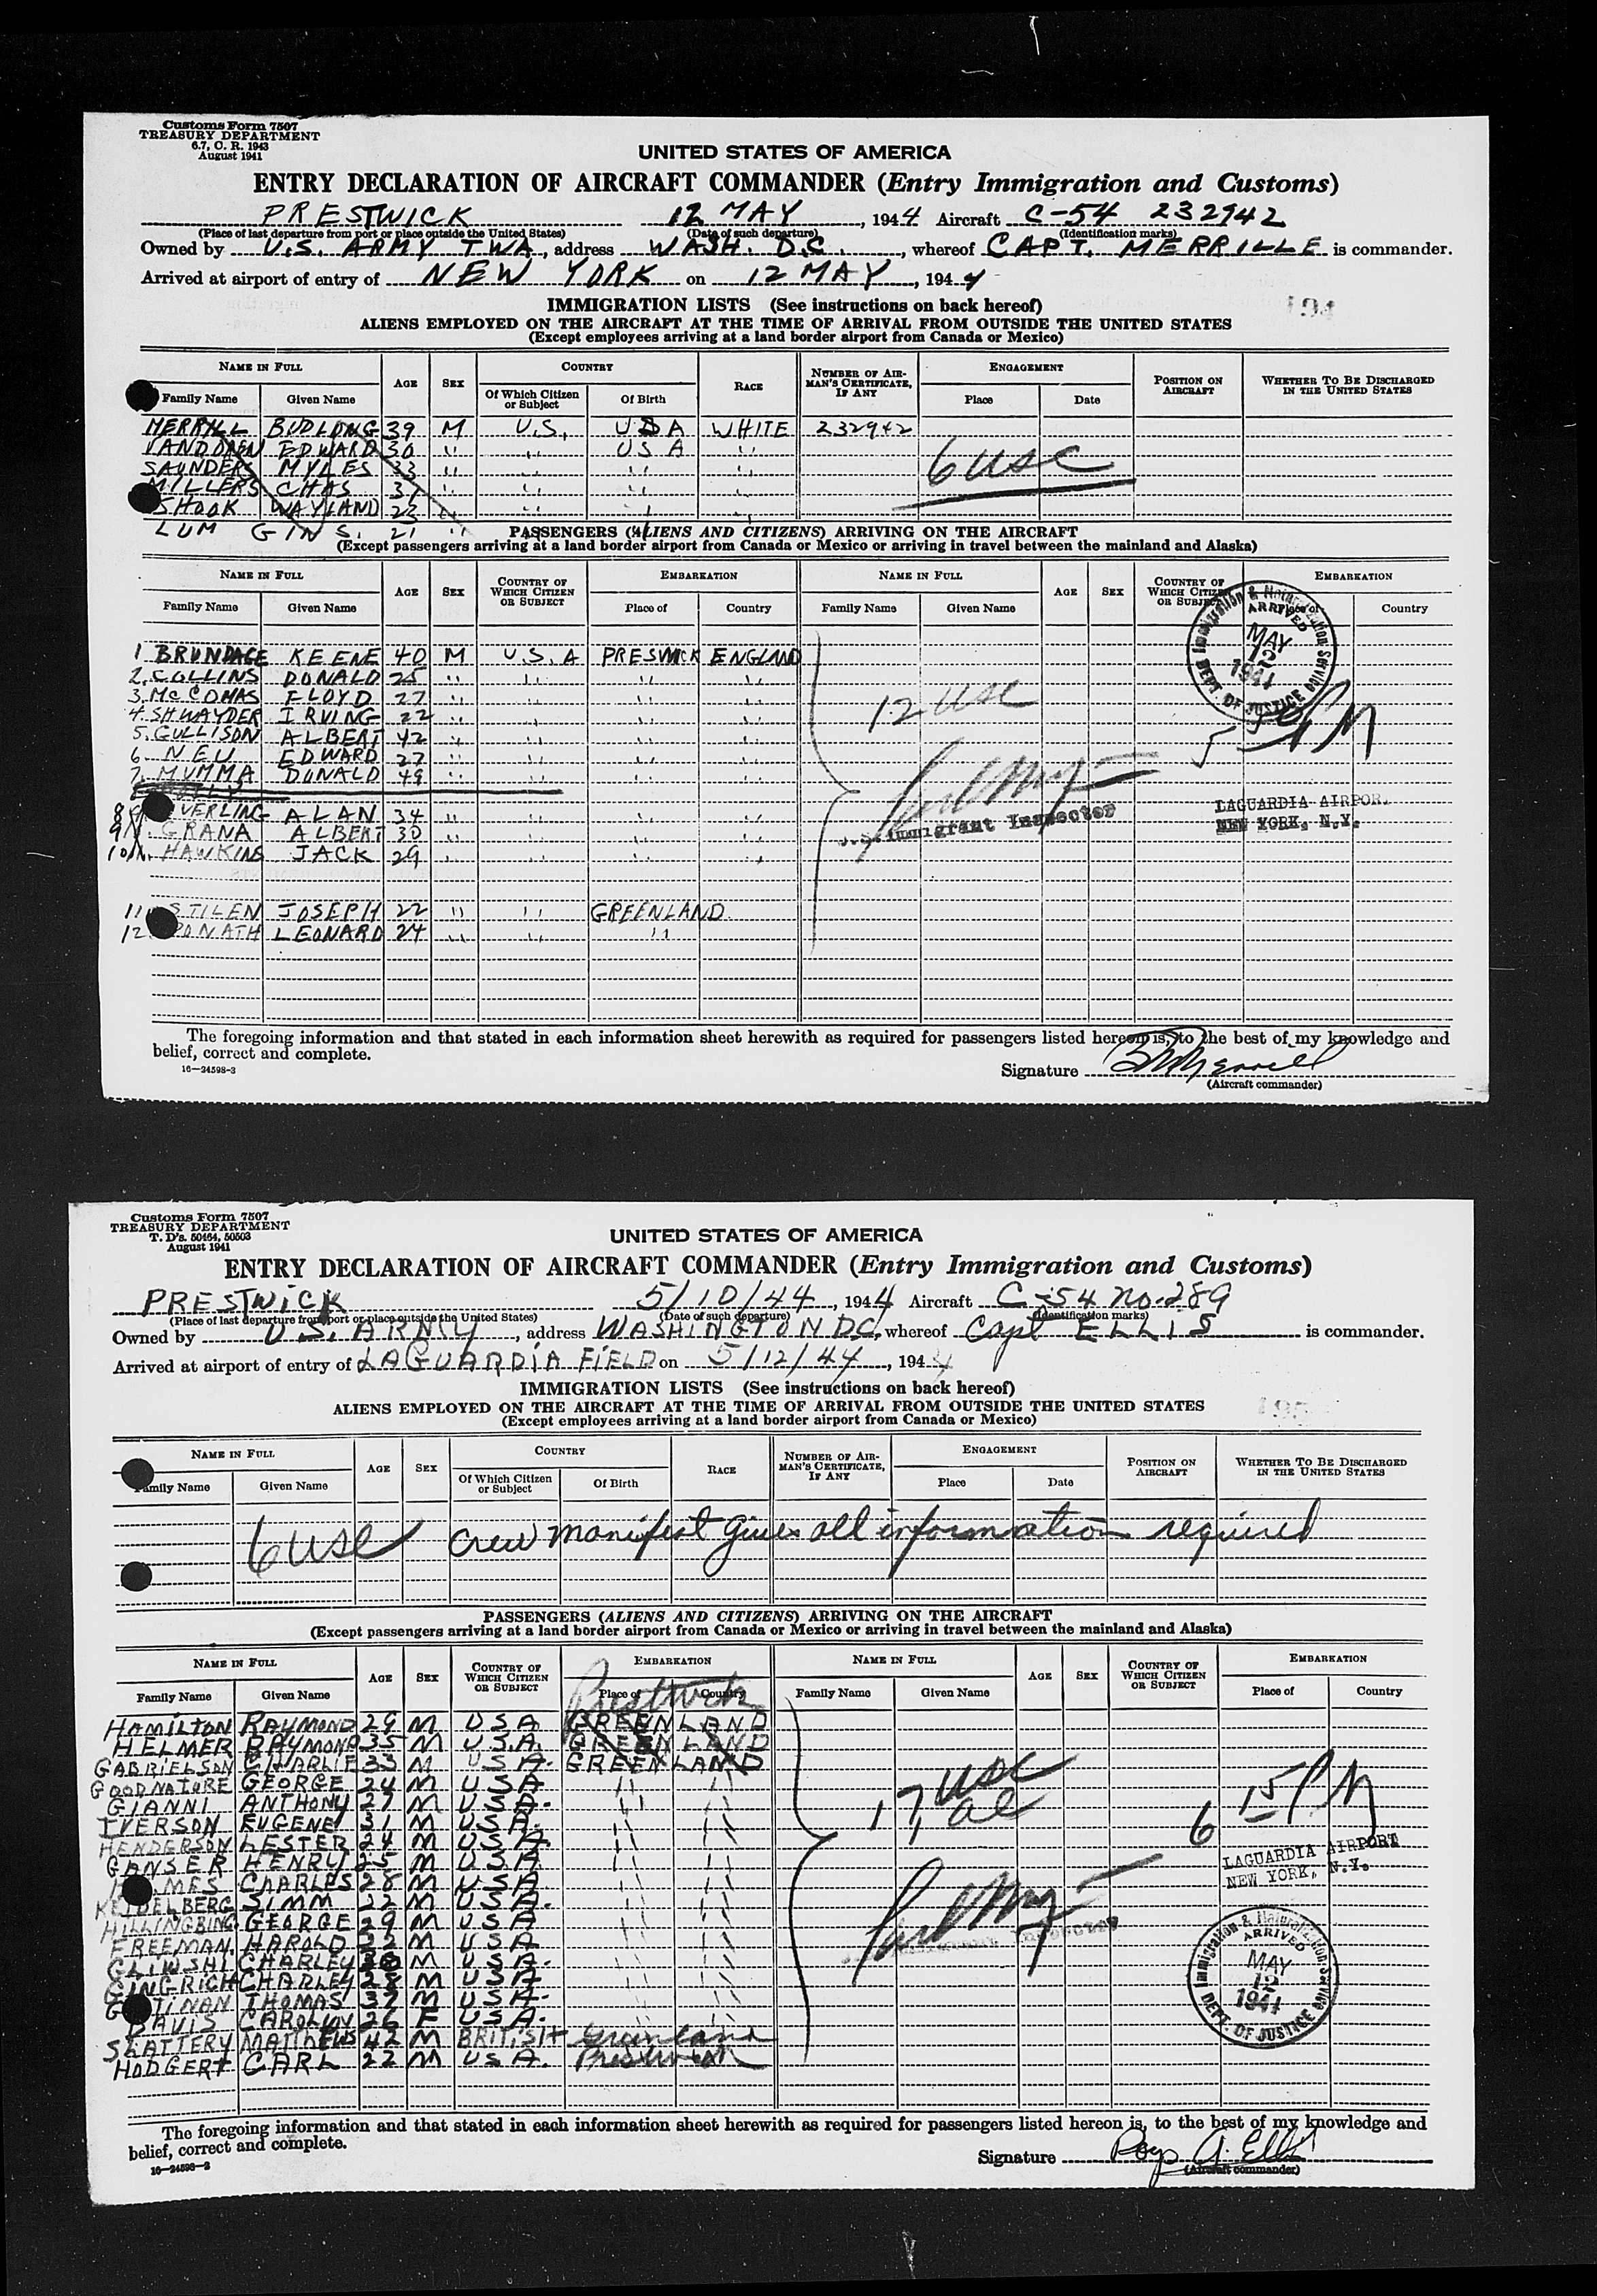 Customs Form 7507
TREASURY DEPARTMENT
6.7, C. R. 1943
August 1941
UNITED STATES OF AMERICA
ENTRY DECLARATION OF AIRCRAFT COMMANDER (Entry Immigration and Customs)
PRESTWICK 12 MAY, 1944 Aircraft C-54 232942
(Place of last departure from port or place outside the United States) (Date of such departure) (Identification marks)
Owned by U.S. ARMY TWA, address WASH. D.C., whereof CAPT. MERRILLE is commander.
Arrived at airport of entry of NEW YORK on 12 MAY, 1944
IMMIGRATION LISTS (See instructions on back hereof)
194
ALIENS EMPLOYED ON THE AIRCRAFT AT THE TIME OF ARRIVAL FROM OUTSIDE THE UNITED STATES
(Except employees arriving at a land border airport from Canada or Mexico)
NAME IN FULL AGE SEX COUNTRY RACE NUMBER OF AIRMAN'S CERTIFICATE, IF ANY ENGAGEMENT POSITION ON AIRCRAFT WHETHER TO BE DISCHARGED IN THE UNITED STATES
Family Name Given Name Of Which Citizen or Subject Of Birth Place Date
MERRILL BUDLONG 39 M U.S. USA WHITE 232942
VANDOREN EDWARD 30 " " USA "
SAUNDERS MYLES 33 " " " "
MILLERS CHAS 31 " " " "
SHOOK WAYLAND 23 " " " "
6 USC
LUM GIN S. 21 " "
PASSENGERS (ALIENS AND CITIZENS) ARRIVING ON THE AIRCRAFT
(Except passengers arriving at a land border airport from Canada or Mexico or arriving in travel between the mainland and Alaska)
NAME IN FULL AGE SEX COUNTRY OF WHICH CITIZEN OR SUBJECT EMBARKATION NAME IN FULL AGE SEX COUNTRY OF WHICH CITIZEN OR SUBJECT EMBARKATION
Family Name Given Name Place of Country Family Name Given Name Place of Country
1 BRUNDAGE KEENE 40 M U.S.A PRESWICK ENGLAND
2. COLLINS DONALD 25 " " " "
3. McCOMAS FLOYD 27 " " " "
4. SHWAYDER IRVING 22 " " " "
5. GULLISON ALBERT 42 " " " "
6. NEU EDWARD 27 " " " "
7. MUMMA DONALD 49 " " " "
8 VERLING ALAN 34 " " " "
9 GRANA ALBERT 30 " " " "
10 HAWKINS JACK 29 " " " "
11 STILEN JOSEPH 22 " " GREENLAND
12 ONATH LEONARD 24 " " "
12 USC
Immigration & Naturalization Service
ARRIVED
MAY
12
1944
DEPT. OF JUSTICE
PM
U.S. Immigrant Inspector
LAGUARDIA AIRPORT
NEW YORK, N.Y.
The foregoing information and that stated in each information sheet herewith as required for passengers listed hereon is, to the best of my knowledge and
belief, correct and complete.
16—24598-3
Signature B Merrill
(Aircraft commander)
Customs Form 7507
TREASURY DEPARTMENT
T. D's. 50464, 50503
August 1941
UNITED STATES OF AMERICA
ENTRY DECLARATION OF AIRCRAFT COMMANDER (Entry Immigration and Customs)
PRESTWICK 5/10/44, 1944 Aircraft C-54 No. 289
(Place of last departure from port or place outside the United States) (Date of such departure) (Identification marks)
Owned by U.S. ARMY, address WASHINGTON D.C. whereof Capt ELLIS is commander.
Arrived at airport of entry of LAGUARDIA FIELD on 5/12/44, 1944
IMMIGRATION LISTS (See instructions on back hereof)
195
ALIENS EMPLOYED ON THE AIRCRAFT AT THE TIME OF ARRIVAL FROM OUTSIDE THE UNITED STATES
(Except employees arriving at a land border airport from Canada or Mexico)
NAME IN FULL AGE SEX COUNTRY RACE NUMBER OF AIRMAN'S CERTIFICATE, IF ANY ENGAGEMENT POSITION ON AIRCRAFT WHETHER TO BE DISCHARGED IN THE UNITED STATES
Family Name Given Name Of Which Citizen or Subject Of Birth Place Date
6 USC Crew manifest gives all information required
PASSENGERS (ALIENS AND CITIZENS) ARRIVING ON THE AIRCRAFT
(Except passengers arriving at a land border airport from Canada or Mexico or arriving in travel between the mainland and Alaska)
NAME IN FULL AGE SEX COUNTRY OF WHICH CITIZEN OR SUBJECT EMBARKATION NAME IN FULL AGE SEX COUNTRY OF WHICH CITIZEN OR SUBJECT EMBARKATION
Family Name Given Name Place of Country Family Name Given Name Place of Country
Prestwick
HAMILTON RAYMOND 29 M USA GREENLAND
HELMER RAYMOND 35 M U.S.A. GREENLAND
GABRIELSON CHARLIE 33 M USA. GREENLAND
GOODNATURE GEORGE 24 M USA " "
GIANNI ANTHONY 27 M USA. " "
IVERSON EUGENE 31 M USA. " "
HENDERSON LESTER 24 M USA " "
GANSER HENRY 25 M USA " "
MES CHARLES 28 M USA " "
KEIDELBERG SIMM 22 M USA. " "
HILLINGBURG GEORGE 29 M USA " "
FREEMAN HAROLD 32 M USA " "
GLIWSHI CHARLEY M USA. " "
GINGRICH CHARLEY 28 M USA " "
TINAN THOMAS 37 M USA. " "
DAVIS CAROLYN 26 F USA. " "
SLATTERY MATTHEWS 42 M BRITISH Greenland
HODGERT CARL 22 M USA. Prestwick
17 USC
1 al
6 15 PM
LAGUARDIA AIRPORT
NEW YORK, N.Y.
Inspector
Immigration & Naturalization Service
ARRIVED
MAY
12
1944
DEPT. OF JUSTICE
The foregoing information and that stated in each information sheet herewith as required for passengers listed hereon is, to the best of my knowledge and
belief, correct and complete.
16—24598-2
Signature Roy A. Ellis
(Aircraft commander)